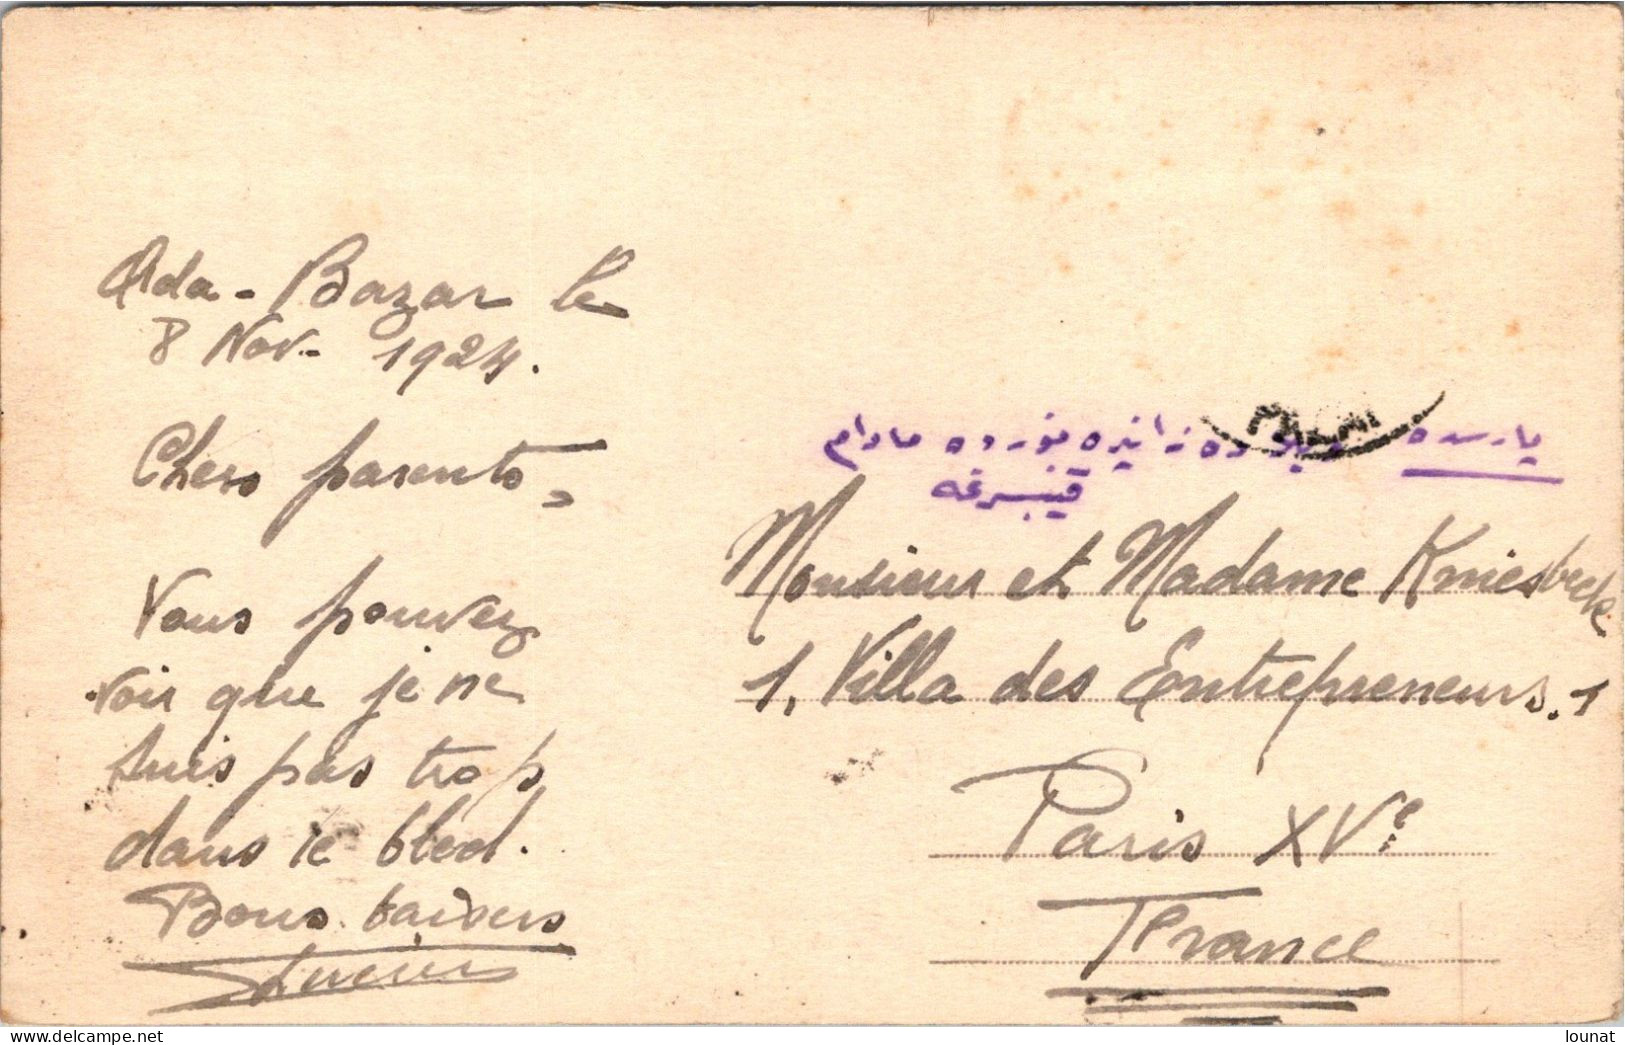 Ada-Bazar le
8 Nov. 1924.
Chers parents,
Vous pouvez
voir que je ne
suis pas trop
dans le bled.
Bons baisers
Lucien
پارسده
مادام
Monsieur et Madame Kniesbeck
1, Villa des Entrepreneurs. 1
Paris XVe
France
lounat